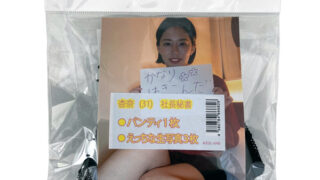 かなり
はきこんだ
杏奈 (31) 社長秘書
●パンティ1枚
●えっちな生写真3枚